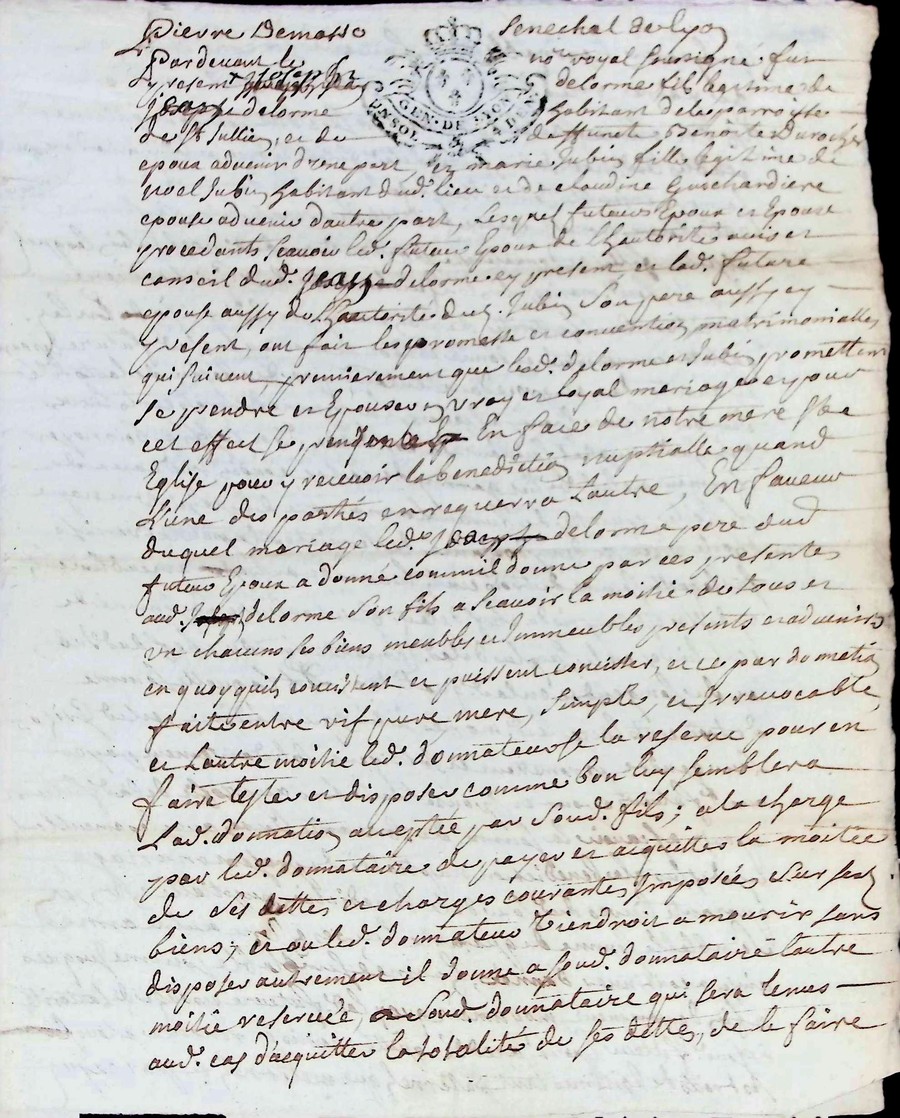 Pierre Demasso Senechal de Lyon
Pardevant le no.re royal soussigné fut
present Joseph delorme fils legitime de
Jean delorme habitant de la parroisse
de St Jullie, et de deffunete Benoite Durocher
epoux advenir d'une part, Et marie Jubin fille legitime de
noel Jubin habitant dud. lieu et de claudine Guichardiere
epouse advenir d'autre part, Lesquel futeurs Epoux et Epouse
procedants scavoir led. futeur Epoux de l'hautorité avis et
conseil dud. Jean delorme ey present, et lad. future
epouse aussy de l'hautorité dud. Jubin son pere aussy ey
present, ont fait les promesse et convention matrimonialles
qui suivent premierement que lesd. delorme et Jubin promettent
se prendre et Epouser en vray et loyal mariage et pour
cet effect se En face de notre mere Ste
Eglise pour y recevoir la benediction nuptialle quand
l'une des partés en requerra l'autre, En faveur
duquel mariage led. Jean delorme pere dud
futeur Epoux a donné comm'il donne par ces presentes
aud. delorme son fils a scavoir la moitié de tous et
un chacuns ses biens meubles et Immeubles presents et advenirs
en quoy quils concistent et puissent concister, et ce par donnation
faite entre vif pure, mere, simple, et Irrevocable,
et L'autre moitie led. donnateur se la reserve pour en
faire tester et disposer comme bon luy semblera
Lad. donnation acceptée par soud. fils; a la charge
par led. donnataire de payer et acquitter la moitée
de ses dettes et charges courantes Imposées sur ses
biens; et ou led. donnateur viendroit a mourir sans
disposer autrement il donne a soud. donnataire l'autre
moitié reservée, soud. donnataire qui sera tenus
aud. cas d'acquitter la totalité de ses dettes, de le faire
GEN. DE LYON